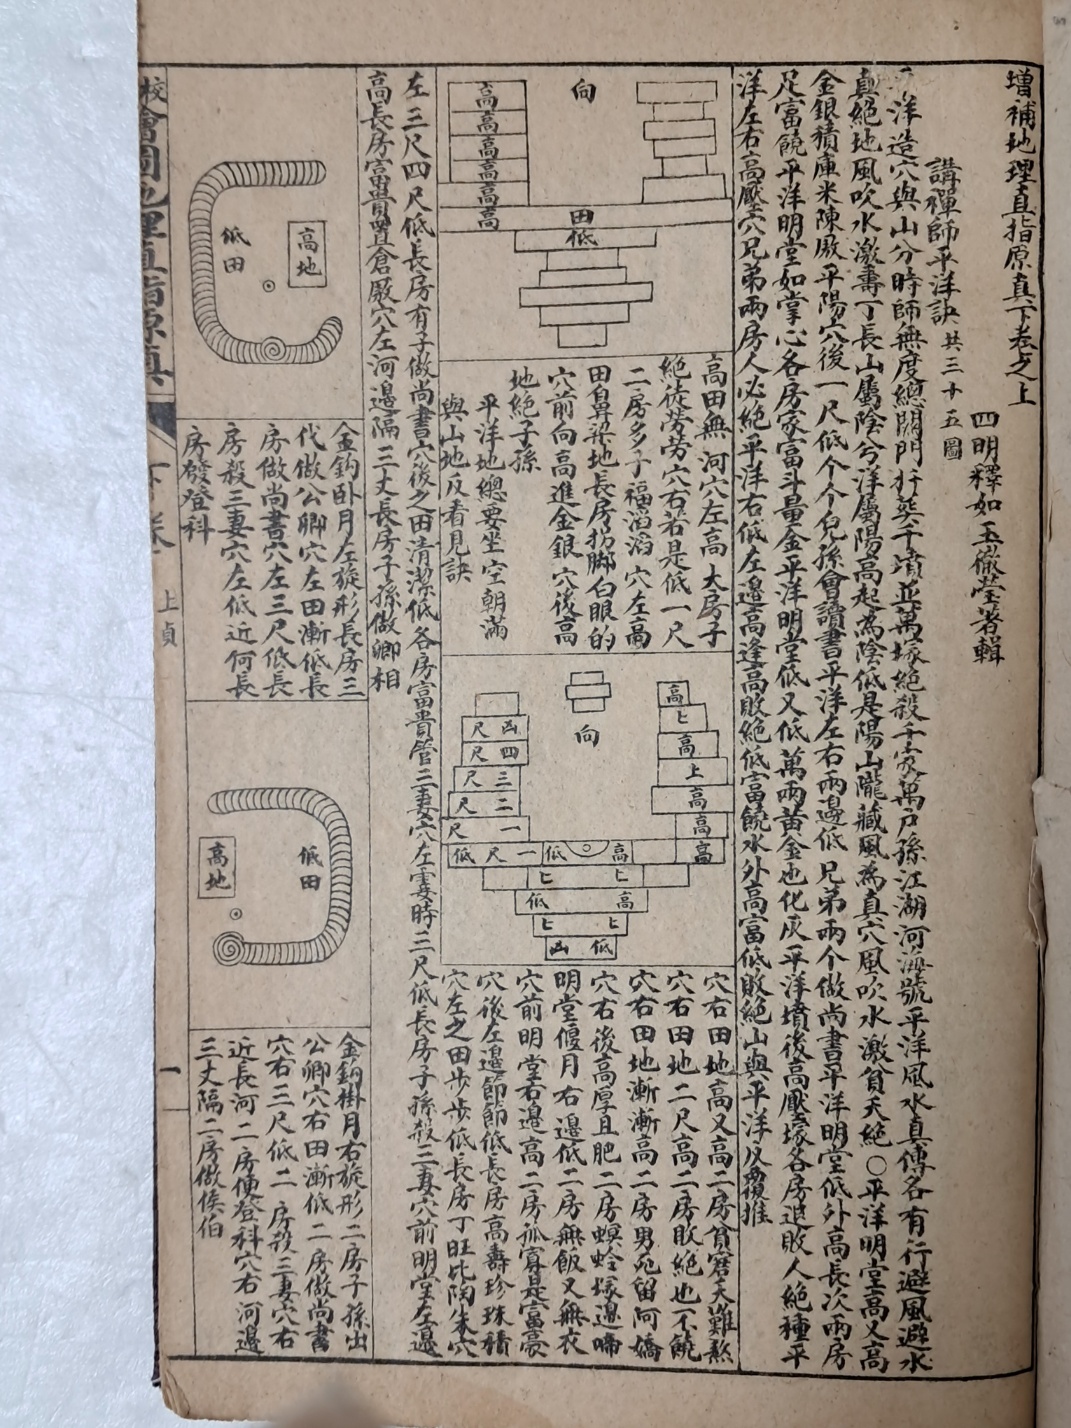 增補地理真指原真下卷之上
四明釋如玉徹瑩著輯
講禪師平洋訣共三十五圖
洋造穴與山分時師無度總關門扦葬千墳並萬塚絕殺千家萬戶孫江湖河海號平洋風水真傳名有行避風避水
真絕地風吹水激壽丁長山屬陰兮洋屬陽高起為陰低是陽山隴藏風為真穴風吹水激貧夭絕○平洋明堂高又高
金銀積庫米陳廒平陽穴後一尺低个个兒孫會讀書平洋左右兩邊低兄弟兩个做尚書平洋明堂低外高長次兩房
足富饒平洋明堂如掌心各房家富斗量金平洋明堂低又低萬兩黃金也化灰平洋墳後高壓塚各房退敗人絕種平
洋左右高壓穴兄弟兩房人必絕平洋右低左邊高逢高敗絕低富饒水外高富低敗絕山與平洋反覆推
向
高
高
高
高
高
田
低
高田無河穴左高大房子
絕從勞勞穴右若是低一尺
二房多子福滔滔穴左高
田鼻梁地長房扔腳白眼的
穴前向高進金銀穴後高
地絕子孫
平洋地總要坐空朝滿
與山地反看見訣
向
高
上
高
上
高
高
高
凶尺
四尺
三尺
二尺
一尺
一尺低
低
高
上
上
低
高
上
上
凶低
穴右田地高又高二房貧窘夭難熬
穴右田地二尺高二房敗絕也不饒
穴右田地漸漸高二房男兒留何嬌
穴右後高厚且肥二房螟蛉塚邊啼
明堂偃月右邊低二房無飯又無衣
穴前明堂右邊高二房孤寡是富豪
穴後左邊節節低長房高壽珍珠積
穴左之田步步低長房丁旺比陶朱穴
左三尺四尺低長房有子做尚書穴後之田清潔低各房富貴管三妻穴左霎時三尺低長房子孫殺三妻穴前明堂左邊
高長房富貴置倉廒穴左河邊隔三丈長房子孫做卿相
低田
高地
金鈎卧月左旋形長房三
代做公卿穴左田漸低長
房做尚書穴左三尺低長
房殺三妻穴左低近何長
房發登科
高地
低田
金鈎掛月右旋形二房子孫出
公卿穴右田漸低二房做尚書
穴右三尺低二房殺三妻穴右
近長河二房便登科穴右河邊
三丈隔二房做侯伯
校會圖地理真指原真
下卷
上貞
一